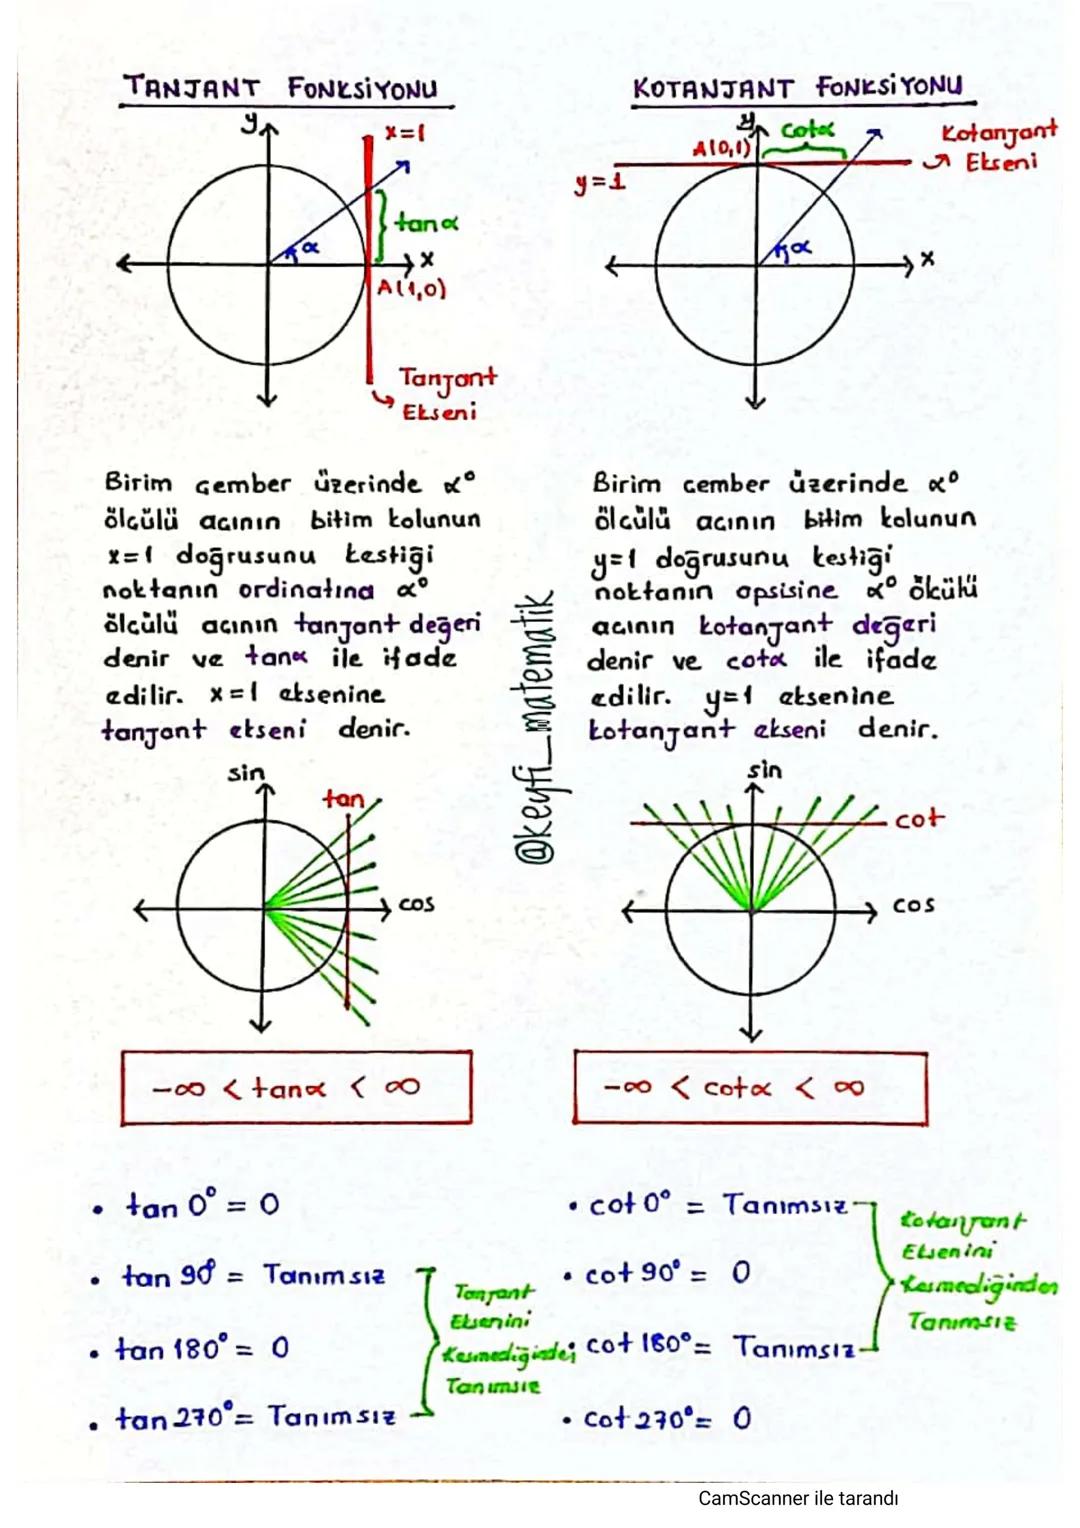 TANJANT FONKSİYONU
y
x=1
tanα
α
x
A(1,0)
Tanjant
Ekseni
Birim çember üzerinde α°
ölçülü açının bitim kolunun
x=1 doğrusunu kestiği
noktanın ordinatına α°
ölçülü açının tanjant değeri
denir ve tanα ile ifade
edilir. x=1 eksenine
tanjant ekseni denir.
sin
tan
cos
-∞ < tanα < ∞
• tan 0° = 0
• tan 90° = Tanımsız
• tan 180° = 0
• tan 270° = Tanımsız
Tanjant
Eksenini
Kesmediğinden
Tanımsız
@keyfi_matematik
KOTANJANT FONKSİYONU
y
cotα
A(0,1)
Kotanjant
Ekseni
y=1
α
x
Birim çember üzerinde α°
ölçülü açının bitim kolunun
y=1 doğrusunu kestiği
noktanın apsisine α° ölçülü
açının kotanjant değeri
denir ve cotα ile ifade
edilir. y=1 eksenine
kotanjant ekseni denir.
sin
cot
cos
-∞ < cotα < ∞
• cot 0° = Tanımsız
• cot 90° = 0
• cot 180° = Tanımsız
• cot 270° = 0
Kotanjant
Eksenini
Kesmediğinden
Tanımsız
CamScanner ile tarandı